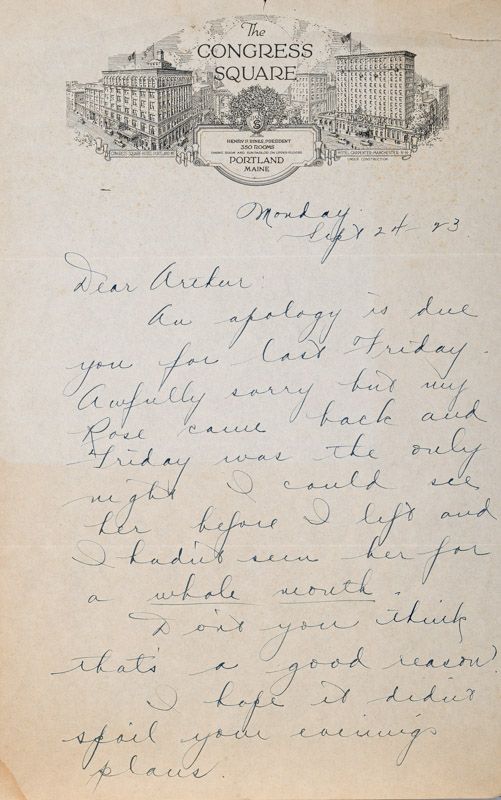 The
CONGRESS
SQUARE
HENRY P. RINES, PRESIDENT
350 ROOMS
PORTLAND
MAINE
CONGRESS SQUARE HOTEL, PORTLAND, ME.
HOTEL CARPENTER-MANCHESTER-N.H.
UNDER CONSTRUCTION
Monday
Sept 24 - 23
Dear Arthur:
An apology is due
you for last Friday.
Awfully sorry but my
Rose came back and
Friday was the only
night I could see
her before I left and
I hadn't seen her for
a whole month.
Don't you think
that's a good reason?
I hope it didn't
spoil your evenings
plans.